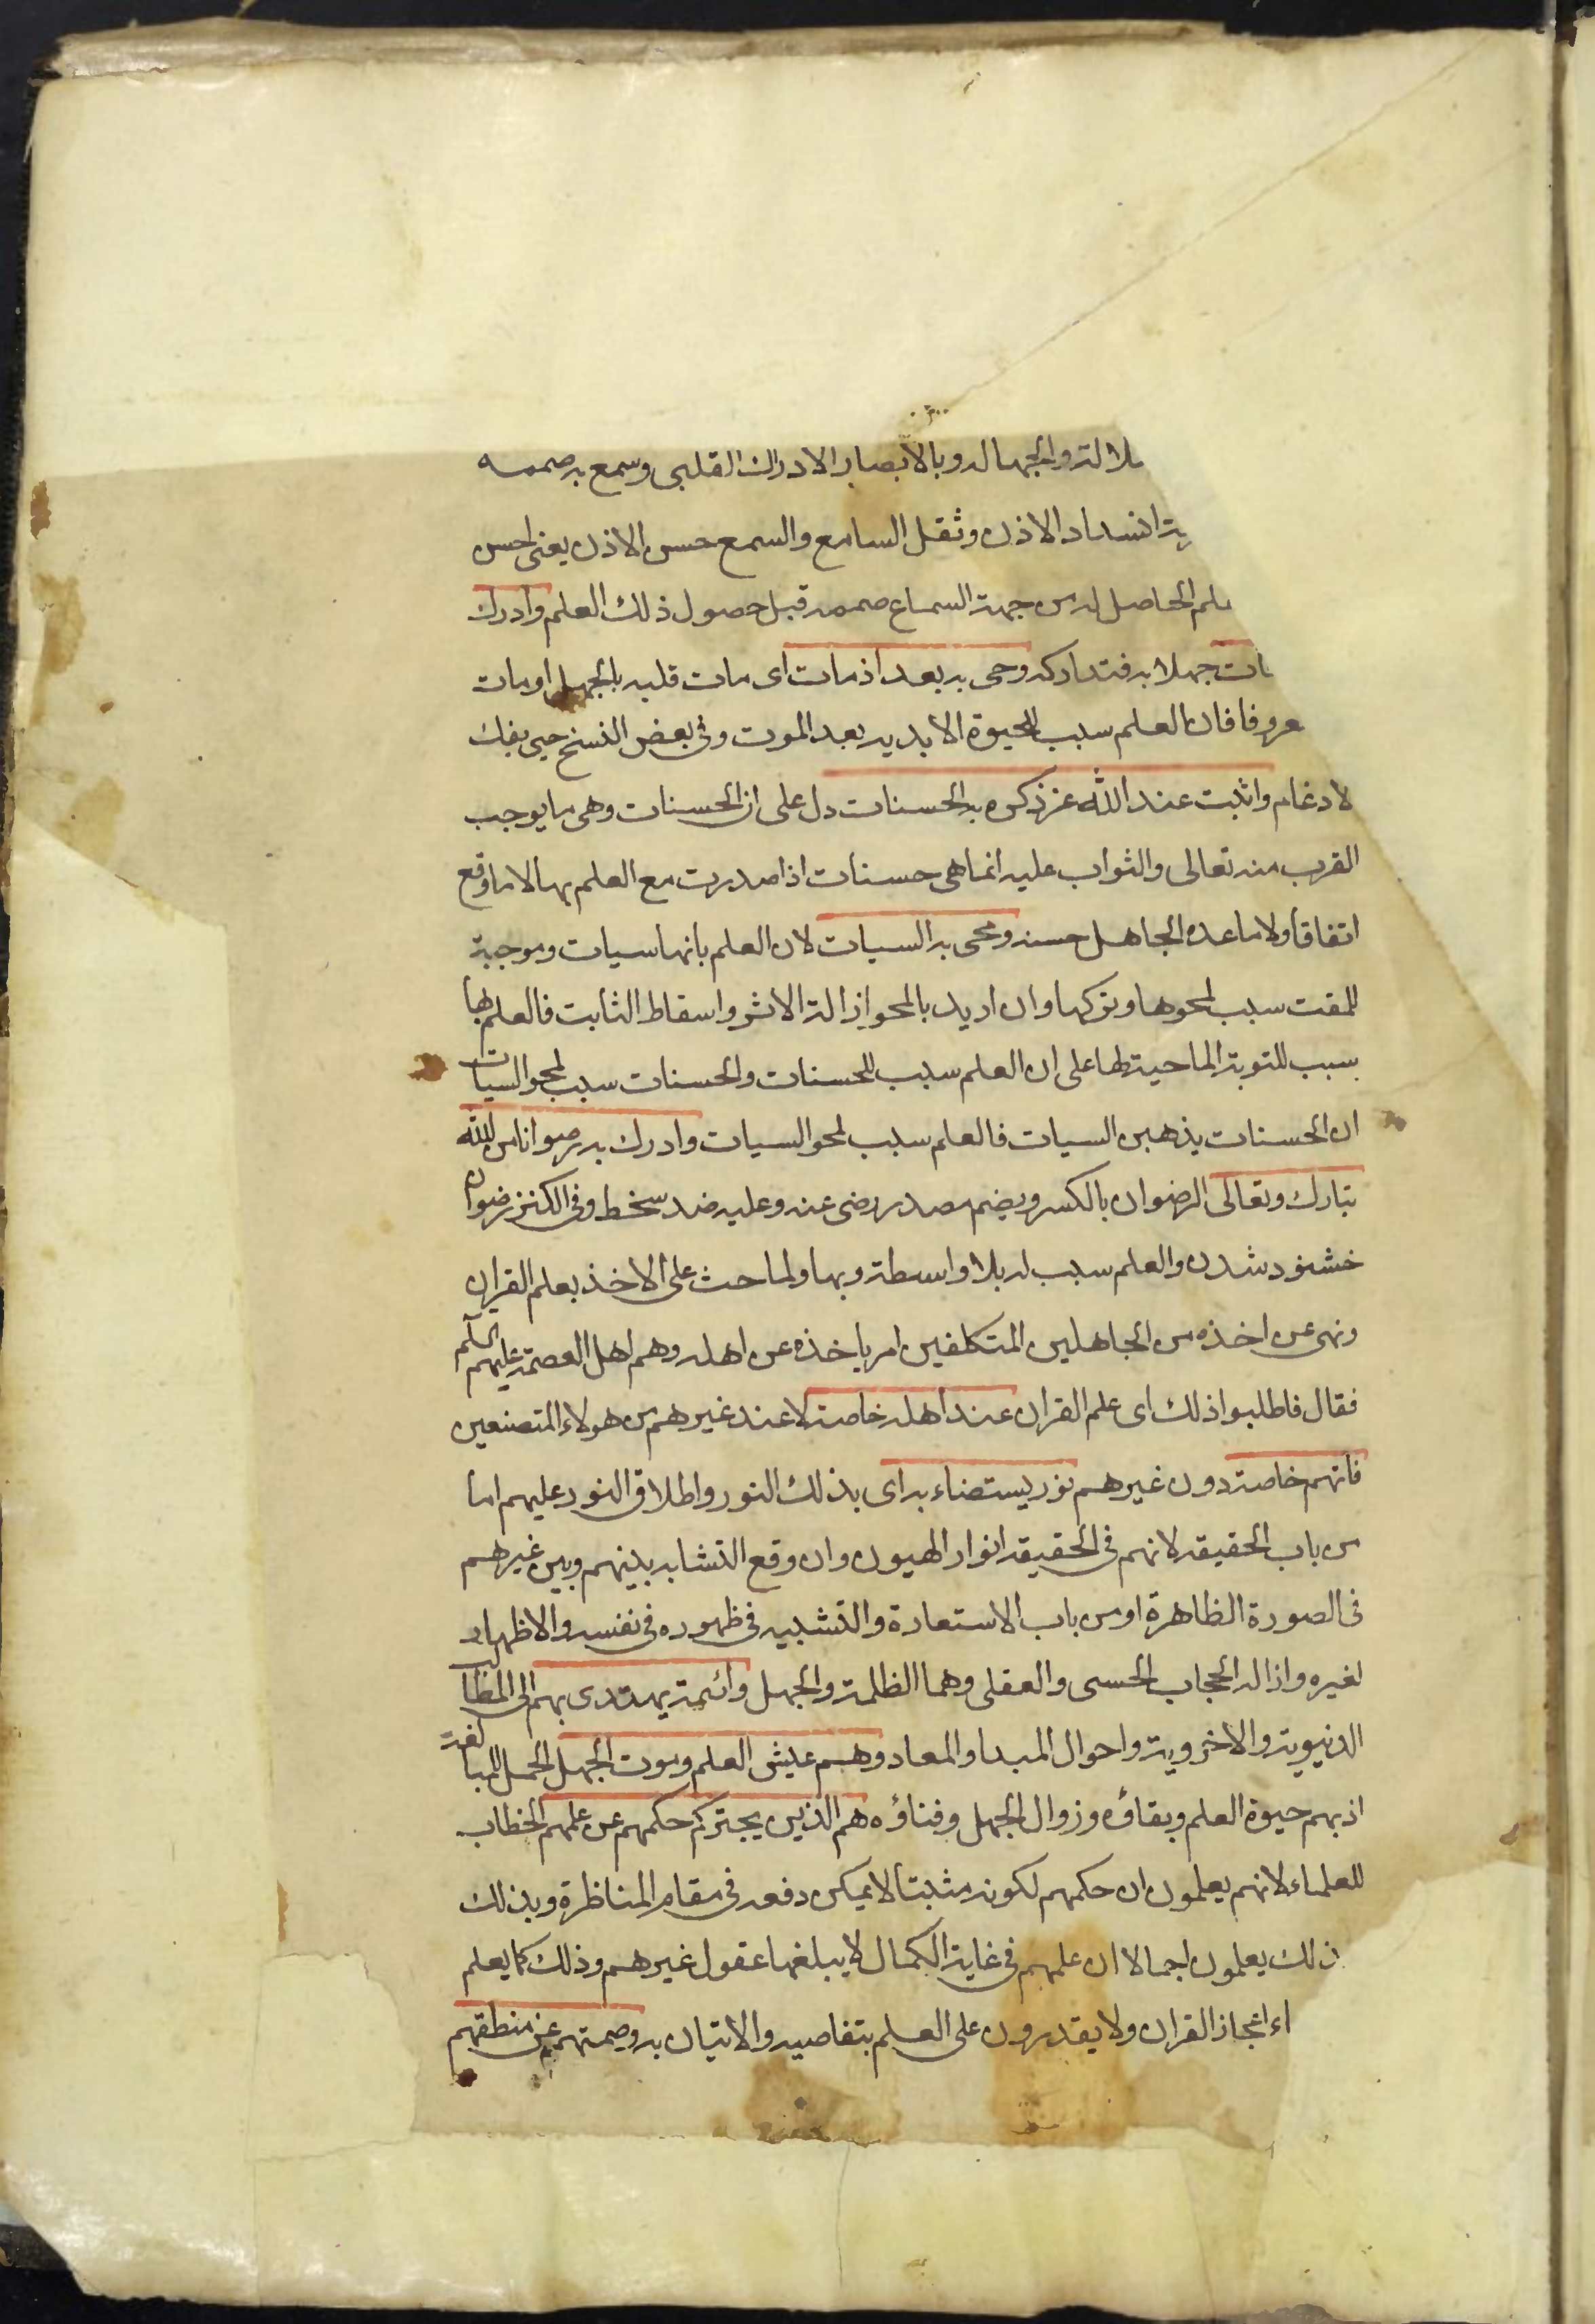 والجهاله وبالابصار الادراك القلبى وسمع به صممه
انسداد الاذن وثقل السامع والسمع حس الاذن يعنى احس
الحاصل له من جهة السماع صممه قبل حصول ذلك العلم وادرك
جهلا به فتداركه وحى به بعد اذ مات اى مات قلبه بالجهل او مات
فان العلم سبب للحيوة الابديه بعد الموت وفى بعض النسخ حيى بفك
لادغام واثبت عند الله عز ذكره به الحسنات دل على ان الحسنات وهى ما يوجب
القرب منه تعالى والثواب عليه انما هى حسنات اذا صدرت مع العلم بها لا ما وقع
اتفاقا ولا ما عده الجاهل حسنه ومحى به السيات لان العلم بانها سيات وموجبة
للمقت سبب لمحوها وتركها وان اريد بالمحو ازالة الاثر واسقاط الثابت فالعلم بها
سبب للتوبة الماحية لها على ان العلم سبب للحسنات والحسنات سبب لمحو السيات
ان الحسنات يذهبن السيات فالعلم سبب لمحو السيات وادرك به رضوانا من الله
تبارك وتعالى الرضوان بالكسر ويضم مصدر رضى عنه وعليه ضد سخط وفى الكنز رضوان
خشنود شدن والعلم سبب له بلا واسطة وبها ولما حث على الاخذ بعلم القران
ونهى عن اخذه من الجاهلين المتكلفين امر باخذه عن اهله وهم اهل العصمة عليهم السلم
فقال فاطلبوا ذلك اى علم القران عند اهله خاصة لا عند غيرهم من هولاء المتصنعين
فانهم خاصة دون غيرهم نور يستضاء به اى بذلك النور واطلاق النور عليهم اما
من باب الحقيقه لانهم فى الحقيقه انوار الهيون وان وقع التشابه بينهم وبين غيرهم
فى الصورة الظاهرة او من باب الاستعارة والتشبيه فى ظهوره فى نفسه والاظهار
لغيره وازاله الحجاب الحسى والعقلى وهما الظلمة والجهل وائمة يهتدى بهم الى المطالب
الدنيوية والاخروية واحوال المبدا والمعاد وهم عيش العلم وموت الجهل الحمل للمبالغة
اذ بهم حيوة العلم وبقاؤه وزوال الجهل وفناؤه هم الذين يخبركم حكمهم عن علمهم الخطاب
للعلماء لانهم يعلمون ان حكمهم لكونه مثبتا لا يمكن دفعه فى مقام المناظرة وبذلك
ذلك يعلمون اجمالا ان علمهم فى غاية الكمال لا يبلغها عقول غيرهم وذلك كما يعلم
اعجاز القران ولا يقدرون على العلم بتفاصيله والاتيان به وصمتهم عن منطقهم